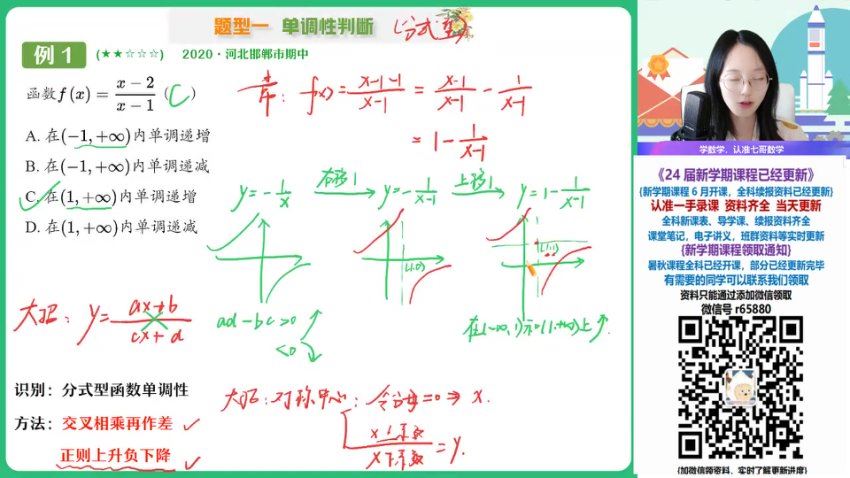 题型一 单调性判断 (分式型)
例 1 (★★☆☆☆) 2020·河北邯郸市期中
函数f(x)=\frac{x-2}{x-1} ( C )
A. 在(-1,+∞)内单调递增
B. 在(-1,+∞)内单调递减
C. 在(1,+∞)内单调递增
D. 在(1,+∞)内单调递减
f(x)=\frac{x-1-1}{x-1}=\frac{x-1}{x-1}-\frac{1}{x-1}
=1-\frac{1}{x-1}
y=-\frac{1}{x} 右移1 y=-\frac{1}{x-1} 上移1 y=1-\frac{1}{x-1}
(1,0)
(1,1)
大招: y=\frac{ax+b}{cx+d}
ad-bc>0 ↗
<0 ↘
在(-∞,1)和(1,+∞)上↑
识别:分式型函数单调性
方法:交叉相乘再作差 ✓
正则上升负下降 ✓
大招:对称中心:令分母=0⇒x.
\frac{x上系数}{x下系数}=y.
学数学,认准七哥数学
《24届新学期课程已经更新》
{新学期课程6月开课,全科续报资料已经更新}
认准一手录课 资料齐全 当天更新
全科新课表、导学课、续报资料齐全
课堂笔记,电子讲义,班群资料等实时更新
{新学期课程领取通知}
暑秋课程全科已经开课,部分已经更新完毕
有需要的同学可以联系我们领取
资料只能通过添加微信领取
微信号 r65880
{加微信领资料,实时了解更新进度}